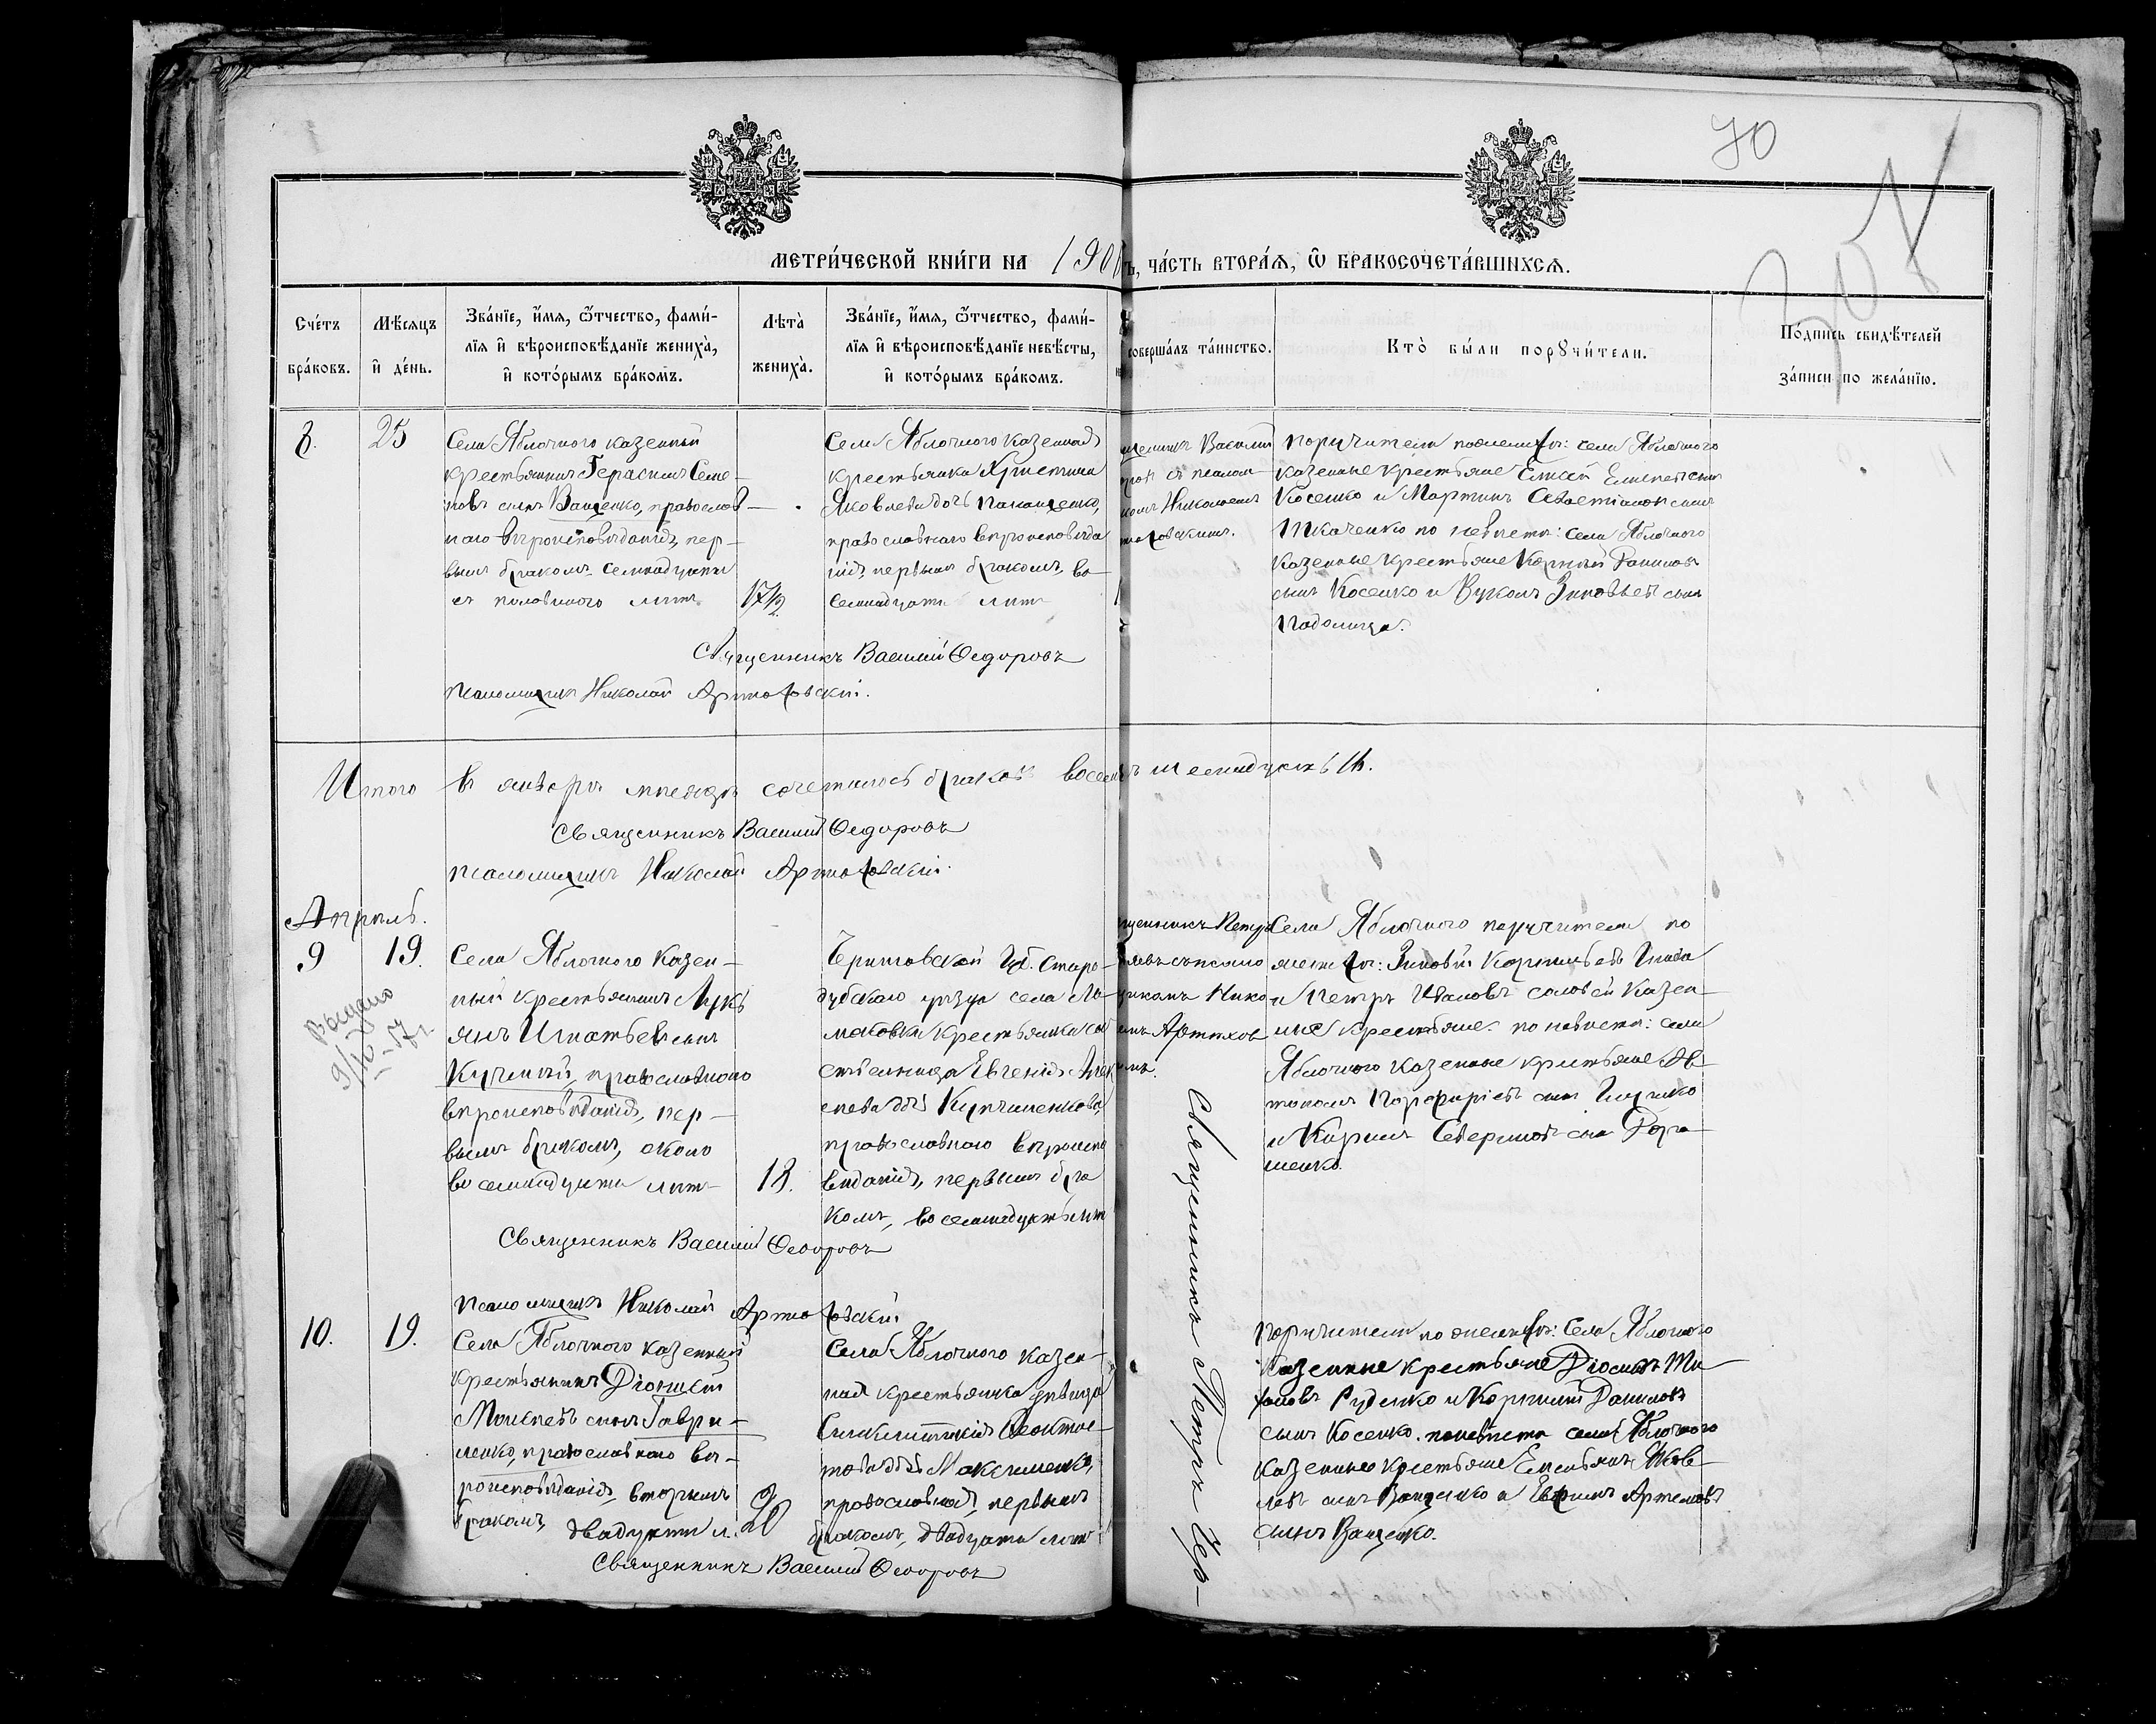 70
МЕТРИ́ЧЕСКОЙ КНИ́ГИ НА 190 Ъ, ЧА́СТЬ ВТОРА́Я, Ѿ БРАКОСОЧЕТА́ВШИХСЯ.
Сче́тъ бра́ковъ.
Мѣ́сяцъ и҆ де́нь.
Зва́нїе, и҆́мя, ѻ҆́тчество, фами́-
лїя и҆ вѣроисповѣ́данїе жениха̀,
и҆ кото́рымъ бра́комъ.
Лѣ́та̀ жениха̀.
Зва́нїе, и҆́мя, ѻ҆́тчество, фами́-
лїя и҆ вѣроисповѣ́данїе невѣ́сты,
и҆ кото́рымъ бра́комъ.
соверша́лъ та́инство.
Кто̀ бы́ли порꙋчи́тели.
По́дпись свидѣ́телей
за́писи по жела́нїю.
8.
25
Села Яблочного казенный
крестьянинъ Герасимъ Семе-
новъ сынъ Ващенко, православ-
наго вѣроисповѣданія, пер-
вымъ бракомъ семнадцати
съ половиною лѣтъ
17½
Села Яблочного казенная
крестьянка Христина
Яковлева дочь
православнаго вѣроисповѣда
нія, первымъ бракомъ, во-
семнадцати лѣтъ
щенникъ Василій
ровъ съ псалом-
комъ Николаемъ
Поручители по женихѣ: села Яблочного
казенные крестьяне Елисей сынъ
Косенко и Мартинъ Севастіановъ сынъ
Ткаченко по невѣстѣ: села Яблочного
казенные крестьяне Корнилій Даниловъ
сынъ Косенко и Вуколъ Зиновьевъ сынъ
Священникъ Василій Ѳедоровъ
Псаломщикъ Николай Артюховскій.
Итого въ январѣ мѣсяцѣ сочеталось браковъ восемь
Священникъ Василій Ѳедоровъ
псаломщикъ Николай Артюховскій.
Апрѣль.
9
19.
Выдано
Села Яблочного казен-
ный крестьянинъ Лукь
янъ Игнатьевъ сынъ
православного
вѣроисповѣданія, пер-
вымъ бракомъ, около
восемнадцати лѣтъ
18.
Черниговской Губ. Старо-
дубскаго уѣзда села
крестьянка
Евгенія Алек
православного вѣроиспо
вѣданія, первымъ бра
комъ, восемнадцать лѣт
щенникъ Петръ
съ псало
щикомъ Нико
емъ Артюхов
имъ.
Священникъ Петръ
Села Яблочного поручители по
женихѣ: Зиновій Корнильевъ
и Петръ Ивановъ Соловей казен-
ные крестьяне. по невѣстѣ: села
Яблочного казенные крестьяне Ав
тономъ Порфиріевъ сынъ
и Кириллъ сынъ Дора
шенко.
Священникъ Василій Ѳедоровъ
Псаломщикъ Николай Артюховскій
10.
19.
Села Яблочного казенный
крестьянинъ Діонисій
Моисеевъ сынъ Гаври-
ленко, православнаго вѣ-
роисповѣданія, вторымъ
бракомъ, двадцати л.
20
Села Яблочного казен-
ная крестьянка дѣвица
Синклитикія Ѳеокти-
това дочь Максименко,
православная, первымъ
бракомъ, двадцати лѣтъ
Поручители по женихѣ: Села Яблочного
казенные крестьяне
Руденко и Корнилій Даниловъ
сынъ Косенко. по невѣстѣ села Яблочного
казенные крестьяне Емельянъ Яков-
левъ сынъ Ващенко и Евфимъ Артемовъ
сынъ Ващенко.
Священникъ Василій Ѳедоровъ